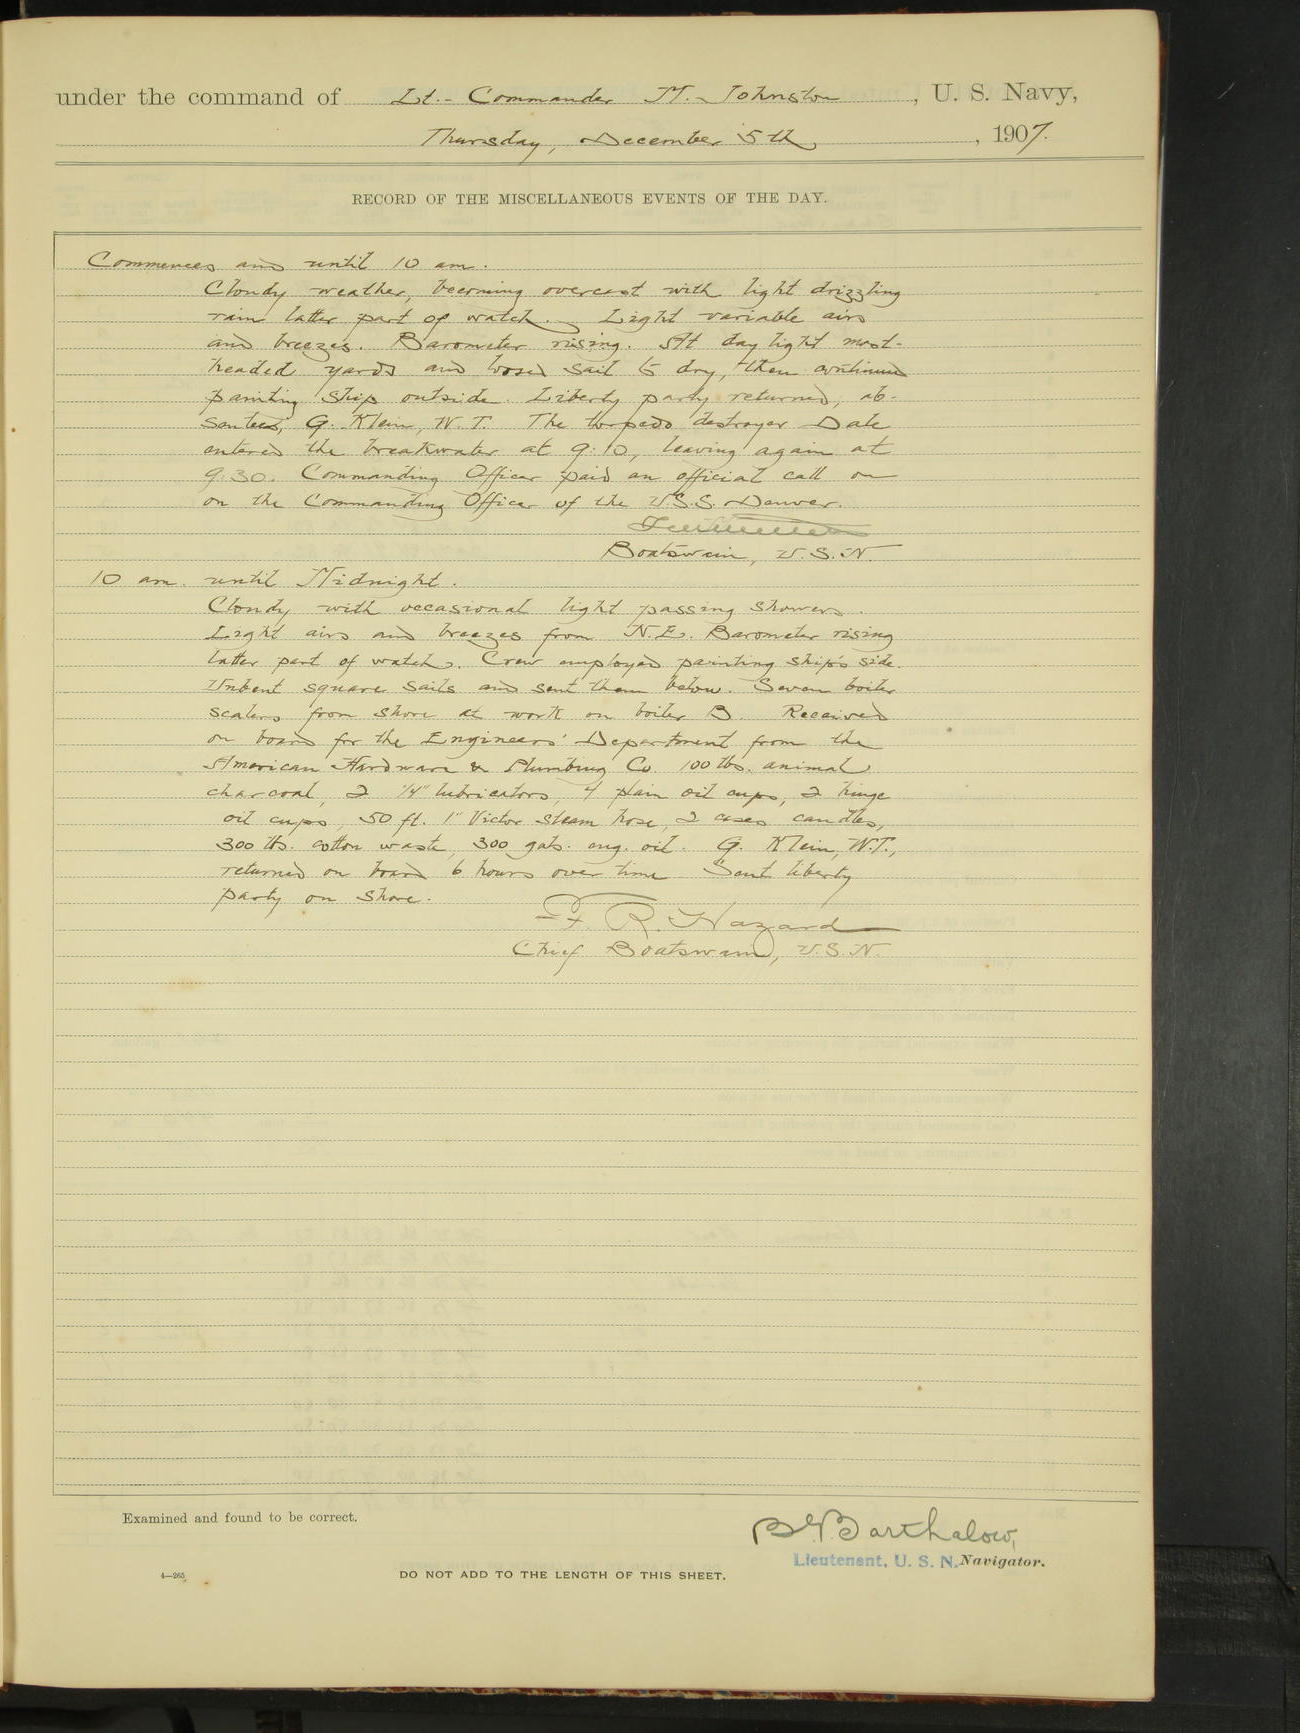 under the command of Lt.- Commander M. Johnston, U. S. Navy,
Thursday, December 5th, 1907.
RECORD OF THE MISCELLANEOUS EVENTS OF THE DAY.
Commences and until 10 am.
Cloudy weather, becoming overcast with light drizzling
rain latter part of watch. Light variable airs
and breezes. Barometer rising. At day light mast-
headed yards and loosed sail to dry, then continued
painting ship outside. Liberty party returned, ab-
sentees, G. Klein, W.T. The torpedo destroyer Dale
entered the breakwater at 9:10, leaving again at
9:30. Commanding Officer paid an official call on
on the Commanding Officer of the U.S.S. Denver.
Boatswain, U.S.N.
10 am. until Midnight.
Cloudy with occasional light passing showers.
Light airs and breezes from N.E. Barometer rising
latter part of watch. Crew employed painting ship's side.
Unbent square sails and sent them below. Seven boiler
scalers from shore at work on boiler B. Received
on board for the Engineers' Department from the
American Hardware & Plumbing Co. 100 lbs. animal
charcoal, 2 1/4" lubricators, 4 plain oil cups, 2 hinge
oil cups, 50 ft. 1" Victor steam hose, 2 cases candles,
300 lbs. cotton waste, 300 gals. eng. oil. G. Klein, W.T.,
returned on board 6 hours over time. Sent liberty
party on shore.
F. R. Hazard
Chief Boatswain, U.S.N.
Examined and found to be correct.
B. Barthalow,
Lieutenant, U. S. N. Navigator.
4—265
DO NOT ADD TO THE LENGTH OF THIS SHEET.